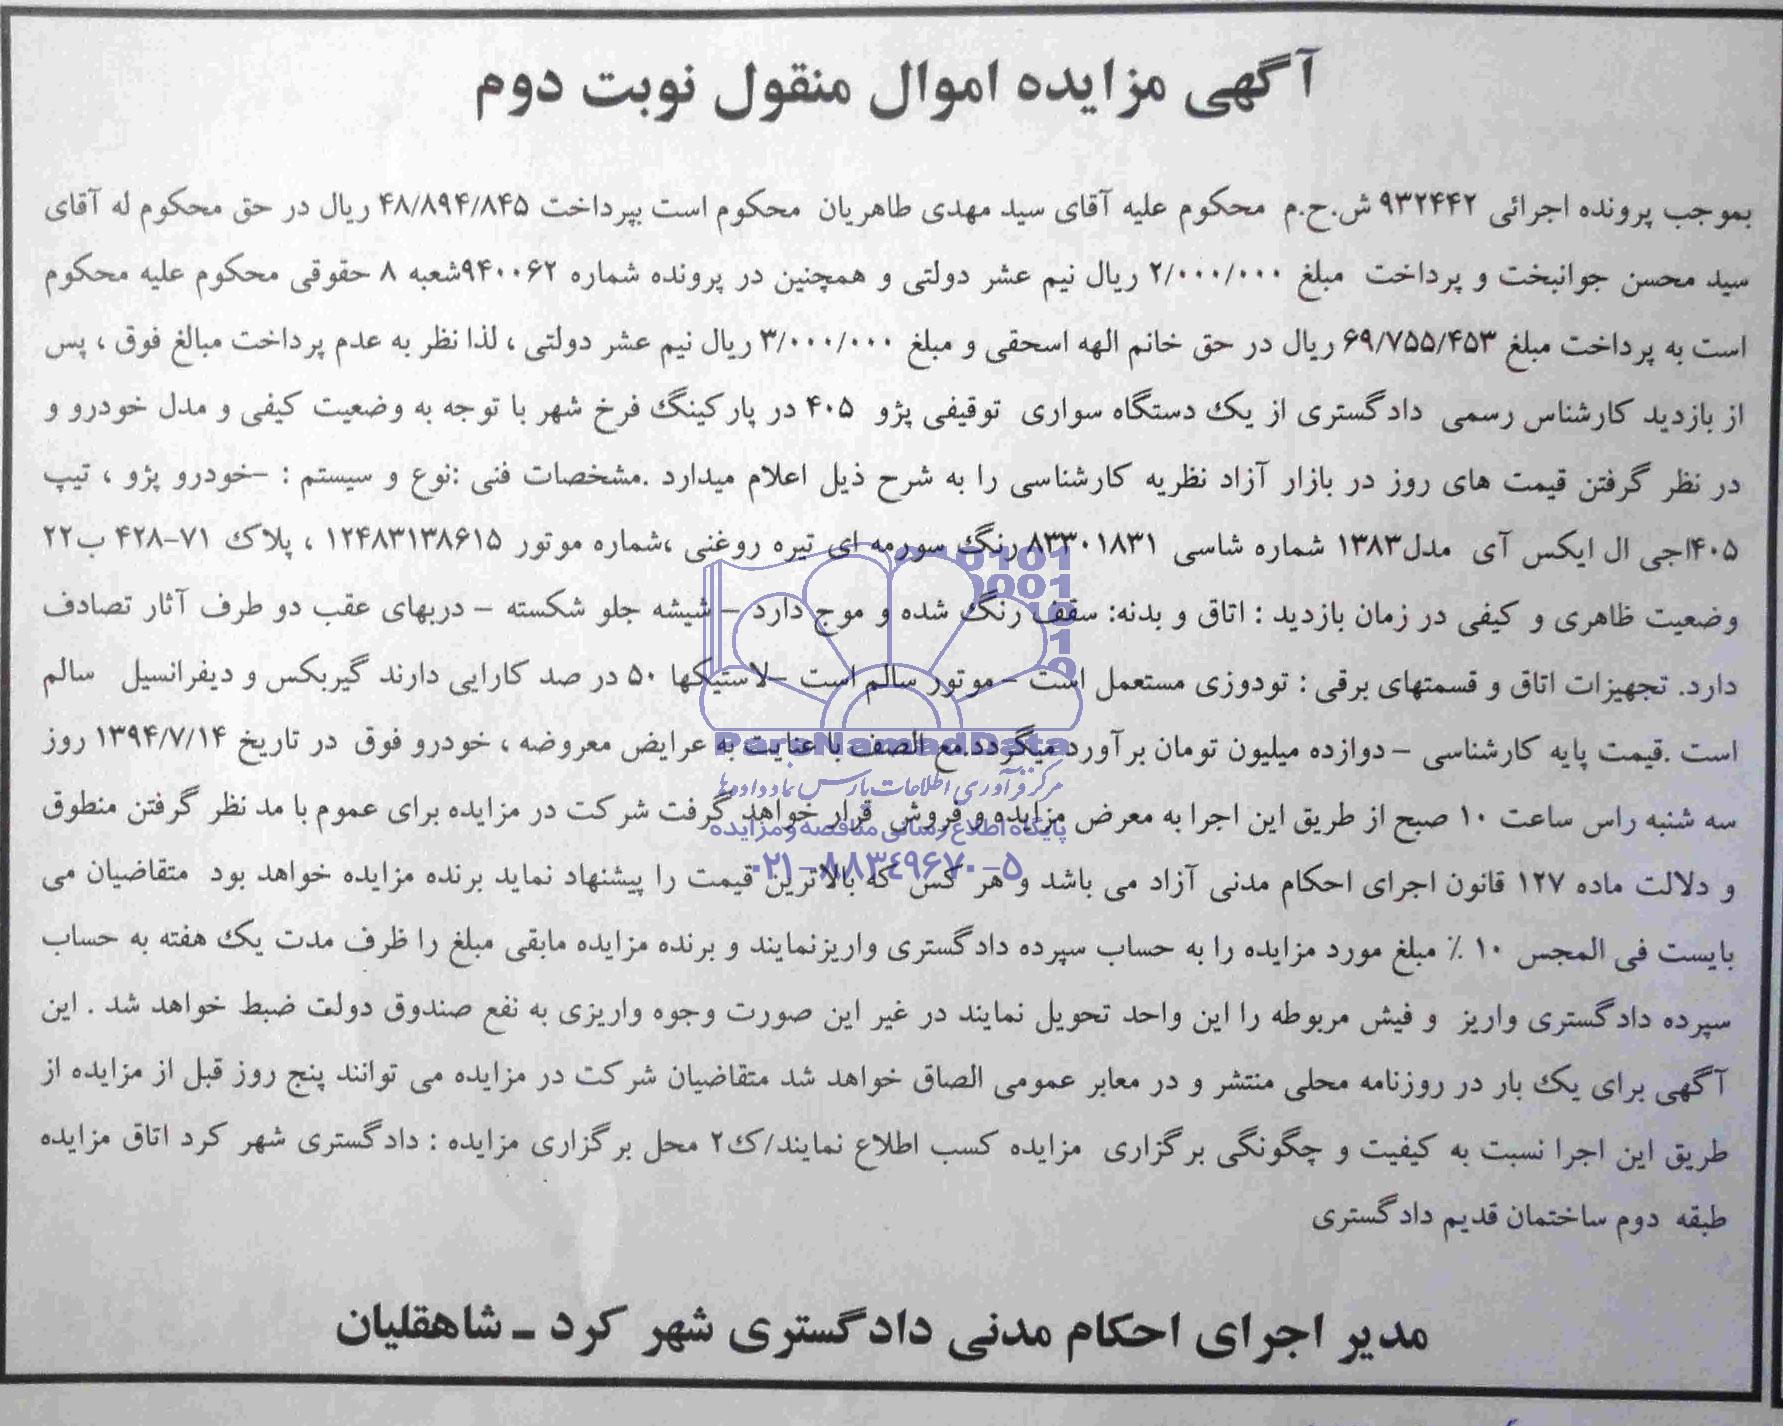 آگهی مزایده اموال منقول نوبت دوم
بموجب پرونده اجرائی ۹۳۲۴۴۲ ش.ح.م محکوم علیه آقای سید مهدی طاهریان محکوم است بپرداخت ۴۸/۸۹۴/۸۴۵ ریال در حق محکوم له آقای
سید محسن جوانبخت و پرداخت مبلغ ۲/۰۰۰/۰۰۰ ریال نیم عشر دولتی و همچنین در پرونده شماره ۹۴۰۰۶۲شعبه ۸ حقوقی محکوم علیه محکوم
است به پرداخت مبلغ ۶۹/۷۵۵/۴۵۳ ریال در حق خانم الهه اسحقی و مبلغ ۳/۰۰۰/۰۰۰ ریال نیم عشر دولتی ، لذا نظر به عدم پرداخت مبالغ فوق ، پس
از بازدید کارشناس رسمی دادگستری از یک دستگاه سواری توقیفی پژو ۴۰۵ در پارکینگ فرخ شهر با توجه به وضعیت کیفی و مدل خودرو و
در نظر گرفتن قیمت های روز در بازار آزاد نظریه کارشناسی را به شرح ذیل اعلام میدارد .مشخصات فنی :نوع و سیستم : -خودرو پژو ، تیپ
۴۰۵جی ال ایکس آی مدل۱۳۸۳ شماره شاسی ۸۳۳۰۱۸۳۱ رنگ سورمه ای تیره روغنی ،شماره موتور ۱۲۴۸۳۱۳۸۶۱۵ ، پلاک ۷۱-۴۲۸ ب۲۲
وضعیت ظاهری و کیفی در زمان بازدید : اتاق و بدنه: سقف رنگ شده و موج دارد – شیشه جلو شکسته – دربهای عقب دو طرف آثار تصادف
دارد. تجهیزات اتاق و قسمتهای برقی : تودوزی مستعمل است – موتور سالم است –لاستیکها ۵۰ در صد کارایی دارند گیربکس و دیفرانسیل سالم
است .قیمت پایه کارشناسی – دوازده میلیون تومان برآورد میگردد.مع الصف با عنایت به عرایض معروضه ، خودرو فوق در تاریخ ۱۳۹۴/۷/۱۴ روز
سه شنبه راس ساعت ۱۰ صبح از طریق این اجرا به معرض مزایده و فروش قرار خواهد گرفت شرکت در مزایده برای عموم با مد نظر گرفتن منطوق
و دلالت ماده ۱۲۷ قانون اجرای احکام مدنی آزاد می باشد و هر کس که بالاترین قیمت را پیشنهاد نماید برنده مزایده خواهد بود متقاضیان می
بایست فی المجس ۱۰ ٪ مبلغ مورد مزایده را به حساب سپرده دادگستری واریزنمایند و برنده مزایده مابقی مبلغ را ظرف مدت یک هفته به حساب
سپرده دادگستری واریز و فیش مربوطه را این واحد تحویل نمایند در غیر این صورت وجوه واریزی به نفع صندوق دولت ضبط خواهد شد . این
آگهی برای یک بار در روزنامه محلی منتشر و در معابر عمومی الصاق خواهد شد متقاضیان شرکت در مزایده می توانند پنج روز قبل از مزایده از
طریق این اجرا نسبت به کیفیت و چگونگی برگزاری مزایده کسب اطلاع نمایند/ک۲ محل برگزاری مزایده : دادگستری شهر کرد اتاق مزایده
طبقه دوم ساختمان قدیم دادگستری
مدیر اجرای احکام مدنی دادگستری شهر کرد ـ شاهقلیان
ParsNamadData
مرکز فرآوری اطلاعات پارس نماد داده‌ها
پایگاه اطلاع رسانی مناقصه و مزایده
۰۲۱-۸۸۳۴۹۶۷۰-۵